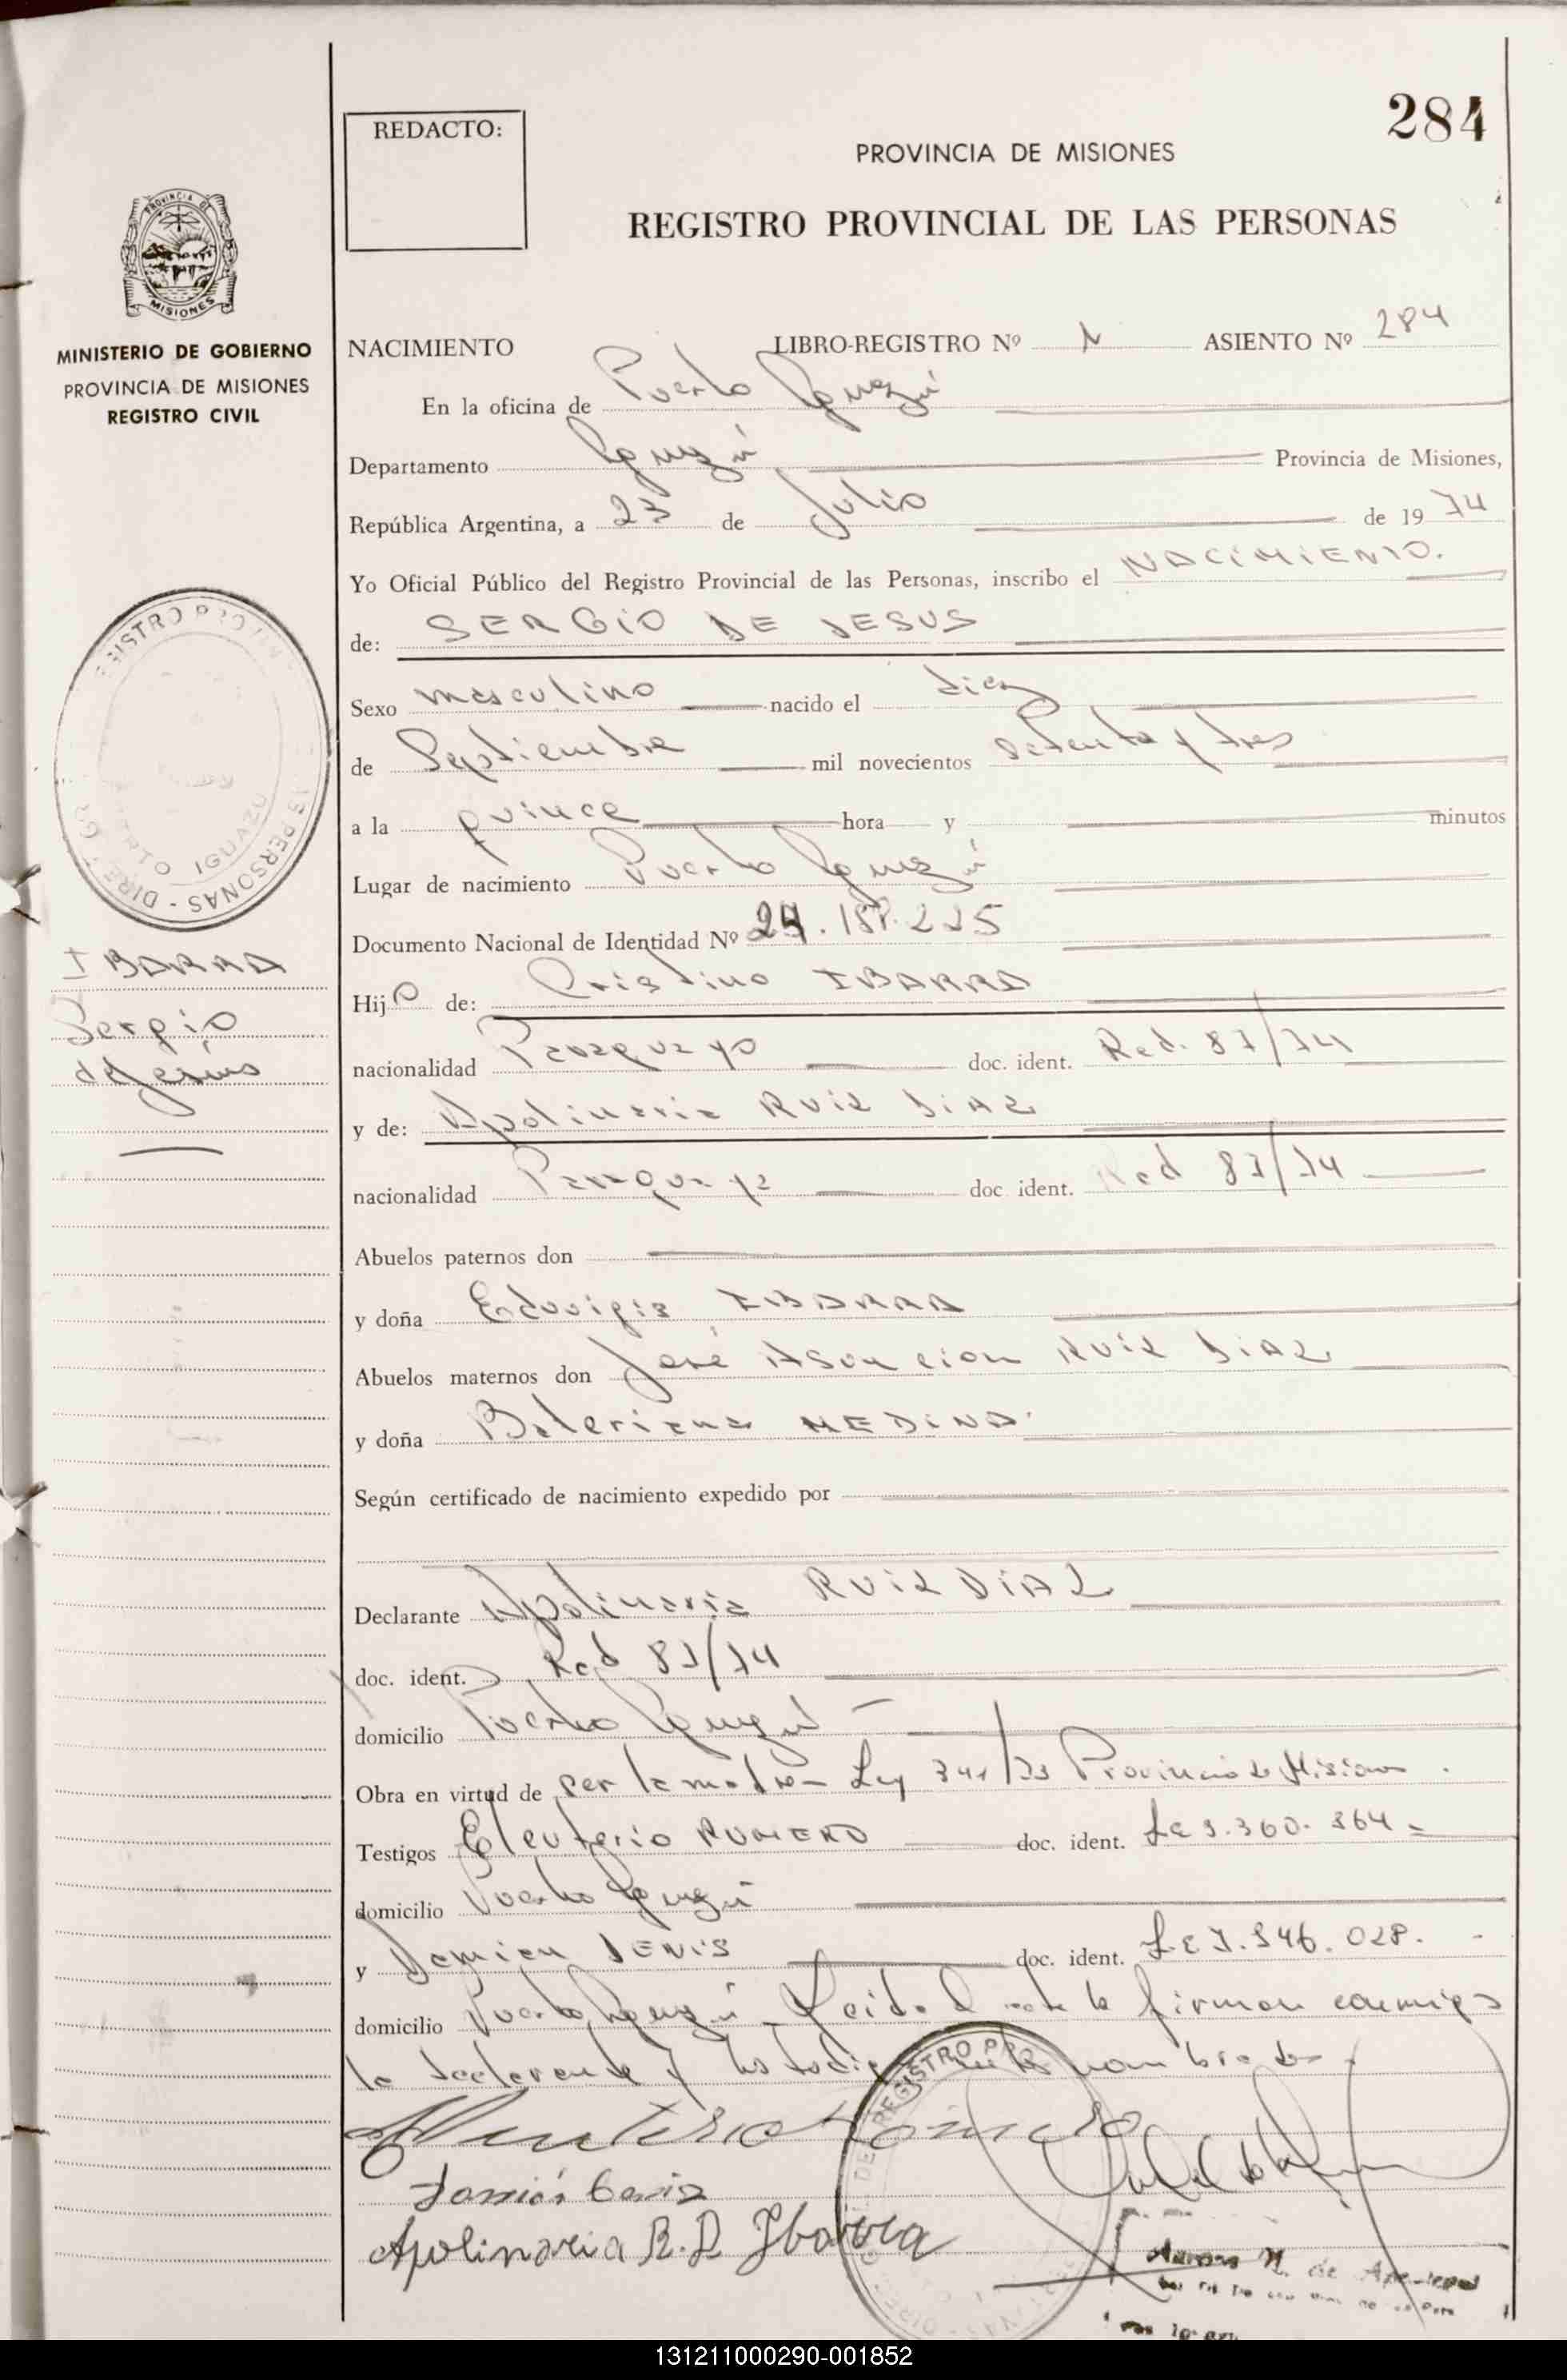 284
REDACTO:
PROVINCIA DE MISIONES
REGISTRO PROVINCIAL DE LAS PERSONAS
PROVINCIA DE
MISIONES
MINISTERIO DE GOBIERNO
PROVINCIA DE MISIONES
REGISTRO CIVIL
NACIMIENTO LIBRO-REGISTRO Nº ASIENTO Nº 284
En la oficina de Puerto Iguazú
Departamento Iguazú Provincia de Misiones,
República Argentina, a 23 de Julio de 19 74
Yo Oficial Público del Registro Provincial de las Personas, inscribo el NACIMIENTO.
de: SERGIO DE JESUS
Sexo masculino nacido el diez
de Septiembre mil novecientos setenta y tres
a la quince hora y minutos
Lugar de nacimiento Puerto Iguazú
Documento Nacional de Identidad Nº
IBARRA
Sergio
de Jesús
Hijo de: Cristino IBARRA
nacionalidad Paraguayo doc. ident. Red. 87/74
y de: Apolinaria RUIZ DIAZ
nacionalidad Paraguaya doc ident. Red 87/74
Abuelos paternos don
y doña Eduvigis IBARRA
Abuelos maternos don José Asuncion RUIZ DIAZ
y doña Baleriana MEDINA.
Según certificado de nacimiento expedido por
Declarante Apolinaria RUIZ DIAZ
doc. ident. Red 87/74
domicilio Puerto Iguazú
Obra en virtud de ser la madre - Ley Provincia de Misiones.
Testigos Eleuterio ROMERO doc. ident.
domicilio Puerto Iguazú
y Damian DENIS doc. ident. L.E 7.546.028.
domicilio Puerto Iguazú - Leida el acta la firman conmigo
la declarante y los nombrados
Eleuterio Romero
Damián Denis
Apolinaria R. D Ibarra
131211000290-001852